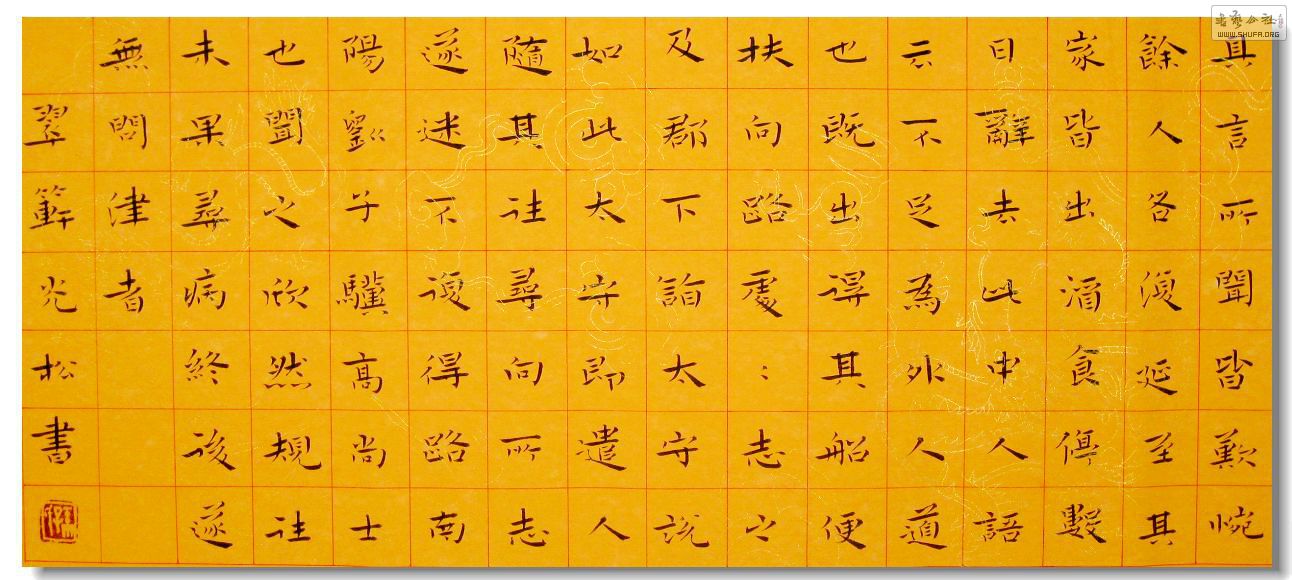 具言所聞皆歎惋
餘人各復延至其
家皆出酒食停數
日辭去此中人語
云不足為外人道
也既出得其船便
扶向路處:志之
及郡下詣太守說
如此太守即遣人
隨其往尋向所志
遂迷不復得路南
陽劉子驥高尚士
也聞之欣然規往
未果尋病終後遂
無問津者
翠光松書
书艺公社
WWW.SHUFA.ORG